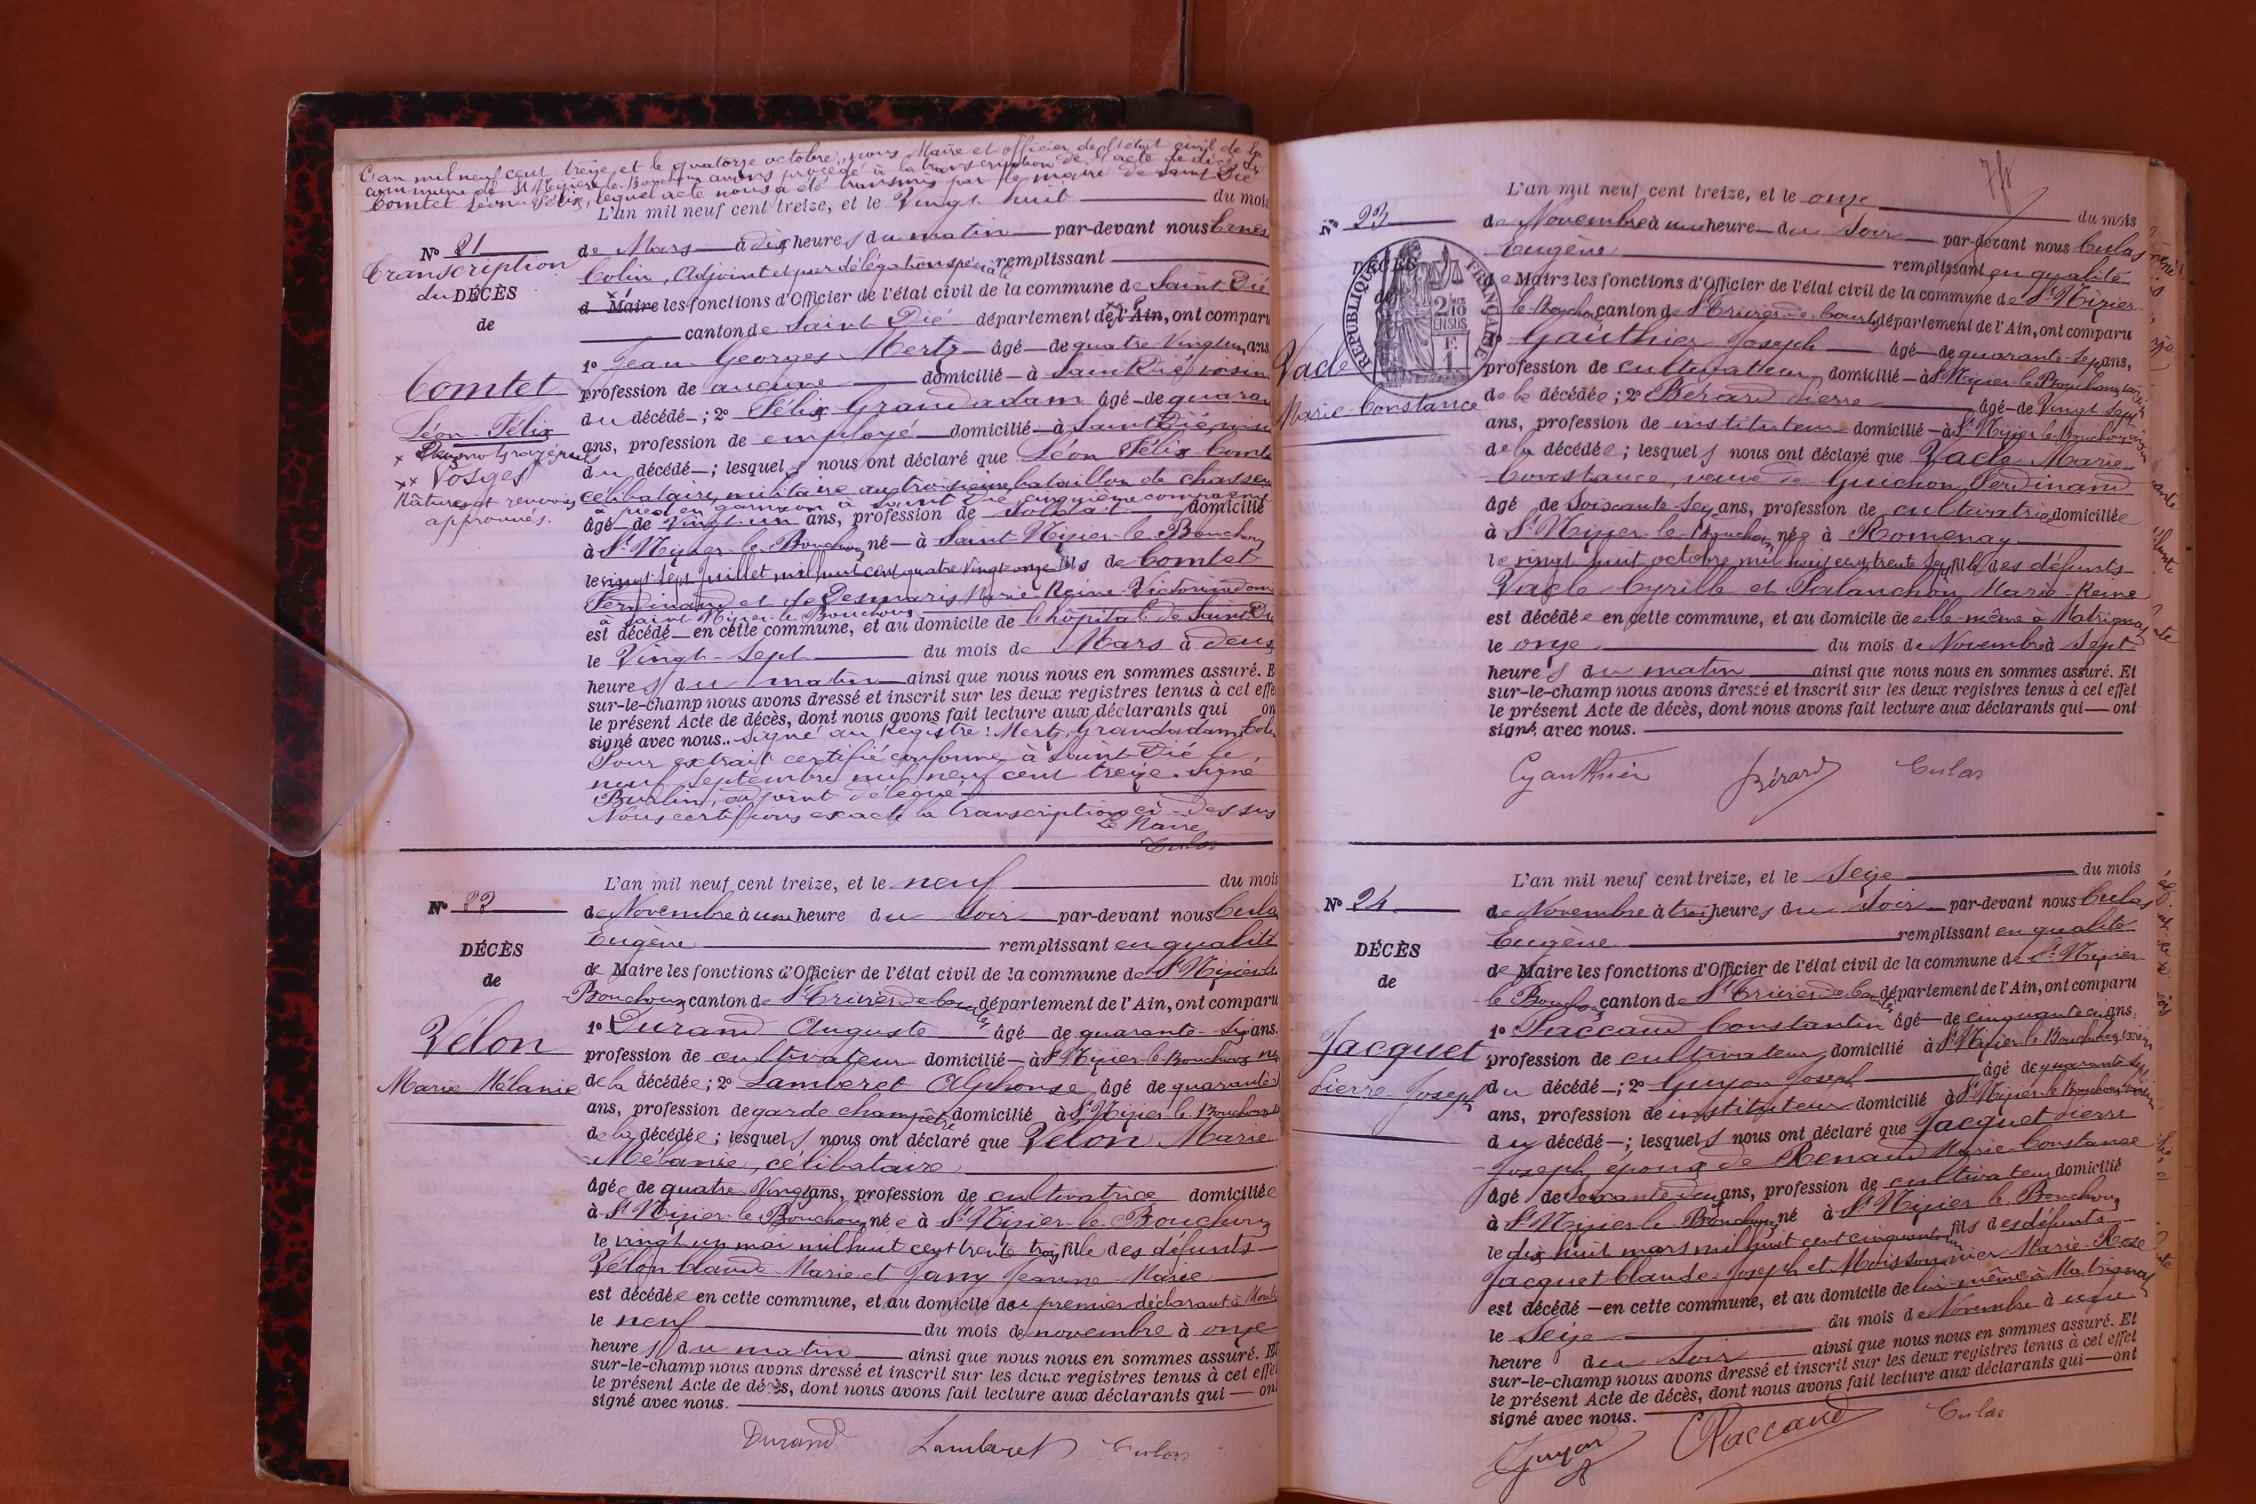 L'an mil neuf cent treize et le quatorze octobre, nous Maire et officier de l'état civil de la
commune de St Nizier-le-Bouchoux avons procédé à la transcription de l'acte de décès de
Comtet Léon-Félix, lequel acte nous a été transmis par le maire de Saint Dié
L'an mil neuf cent treize, et le Vingt huit du mois
No 21
Transcription
du DÉCÈS
de
Comtet
Léon-Félix
Vosges
approuvés.
de Mars à dix heures du matin par-devant nous Ernest
Colin, Adjoint et par délégation spéciale remplissant
d Maire les fonctions d'Officier de l'état civil de la commune de Saint Dié
canton de Saint Dié département de l'Ain, ont comparu
1o Jean Georges Mertz âgé de quatre vingt un ans,
profession de aucune domicilié à Saint Dié voisin
du décédé ; 2o Félix Grandadam âgé de quaran
ans, profession de employé domicilié à Saint Dié, voisin
du décédé ; lesquels nous ont déclaré que Léon Félix Comte
célibataire, militaire au troisième bataillon de chasseurs
à pied en garnison à Saint Dié cinquième compagnie
âgé de vingt-un ans, profession de soldat domicilié
à St Nizier-le-Bouchoux né à Saint Nizier-le-Bouchoux
le vingt sept juillet mil huit cent quatre vingt onze fils de Comtet
Ferdinand et de Desmaris Marie Reine Victorine dom
à Saint Nizier-le-Bouchoux
est décédé en cette commune, et au domicile de l'hôpital de Saint Dié
le Vingt-sept du mois de Mars à deux
heures du matin ainsi que nous nous en sommes assuré. E
sur-le-champ nous avons dressé et inscrit sur les deux registres tenus à cet effe
le présent Acte de décès, dont nous avons fait lecture aux déclarants qui on
signé avec nous.. Signé au Registre : Mertz, Grandadam, Colin
Pour extrait certifié conforme à Saint-Dié le
neuf septembre mil neuf cent treize. Signé
Burlin, adjoint délégué
Nous certifions exacte la transcription ci-dessus
Le Maire
Culas
L'an mil neuf cent treize, et le neuf du mois
No 22
DÉCÈS
de
Vélon
Marie Mélanie
de Novembre à une heure du soir par-devant nous Culas
Eugène remplissant en qualité
de Maire les fonctions d'Officier de l'état civil de la commune de St Nizier le
Bouchoux canton de St Trivier de Courtes département de l'Ain, ont comparu
1o Durand Auguste âgé de quarante six ans.
profession de cultivateur domicilié à St Nizier-le-Bouchoux
de la décédée ; 2o Lamberet Alphonse âgé de quarante
ans, profession de garde champêtre domicilié à St Nizier le Bouchoux
de la décédée ; lesquels nous ont déclaré que Vélon Marie
Mélanie, célibataire
âgée de quatre vingt ans, profession de cultivatrice domiciliée
à St Nizier-le-Bouchoux née à St Nizier-le-Bouchoux
le vingt un mai mil huit cent trente trois fille des défunts
Vélon Claude Marie et Jany Jeanne Marie
est décédée en cette commune, et au domicile du premier déclarant à
le neuf du mois de novembre à onze
heures du matin ainsi que nous nous en sommes assuré. Et
sur-le-champ nous avons dressé et inscrit sur les deux registres tenus à cet effet
le présent Acte de décès, dont nous avons fait lecture aux déclarants qui ont
signé avec nous.
Durand Lamberet Culas
L'an mil neuf cent treize, et le onze du mois
No 23
DÉCÈS
de
RÉPUBLIQUE FRANÇAISE
2/10 EN SUS
Vacle
Marie Constance
de Novembre à une heure du soir par-devant nous Culas
Eugène remplissant en qualité
de Maire les fonctions d'Officier de l'état civil de la commune de St Nizier
le Bouchoux canton de St Trivier-de-Courtes département de l'Ain, ont comparu
1o Gauthier Joseph âgé de quarante-sept ans,
profession de cultivateur domicilié à St Nizier-le-Bouchoux voisin
de la décédée ; 2o Bérard Pierre âgé de Vingt sept
ans, profession de instituteur domicilié à St Nizier le Bouchoux voisin
de la décédée ; lesquels nous ont déclaré que Vacle Marie
Constance, veuve de Guichon Ferdinand
âgé de soixante seize ans, profession de cultivatrice domiciliée
à St Nizier-le-Bouchoux née à Romenay
le vingt huit octobre mil huit cent trente sept fille des défunts
Vacle Cyrille et Palanchon Marie-Reine
est décédée en cette commune, et au domicile de elle-même à Matrignat
le onze du mois de Novembre à sept
heures du matin ainsi que nous nous en sommes assuré. Et
sur-le-champ nous avons dressé et inscrit sur les deux registres tenus à cet effet
le présent Acte de décès, dont nous avons fait lecture aux déclarants qui ont
signé avec nous.
Gauthier Bérard Culas
L'an mil neuf cent treize, et le Seize du mois
No 24
DÉCÈS
de
Jacquet
Pierre-Joseph
de Novembre à trois heures du soir par-devant nous Culas
Eugène remplissant en qualité
de Maire les fonctions d'Officier de l'état civil de la commune de St Nizier
le Bouchoux canton de St Trivier de Courtes département de l'Ain, ont comparu
1o Paccaud Constantin âgé de cinquante cinq ans,
profession de cultivateur domicilié à St Nizier-le-Bouchoux voisin
du décédé ; 2o Guyon Joseph âgé de quarante sept
ans, profession de instituteur domicilié à St Nizier-le-Bouchoux voisin
du décédé ; lesquels nous ont déclaré que Jacquet Pierre
Joseph, époux de Renaud Marie-Constance
âgé de soixante deux ans, profession de cultivateur domicilié
à St Nizier-le-Bouchoux né à St Nizier le Bouchoux
le dix huit mars mil huit cent cinquante un fils des défunts
Jacquet Claude-Joseph et Moissonnier Marie-Rose
est décédé en cette commune, et au domicile de lui-même à Matrignat
le Seize du mois de Novembre à une
heure du soir ainsi que nous nous en sommes assuré. Et
sur-le-champ nous avons dressé et inscrit sur les deux registres tenus à cet effet
le présent Acte de décès, dont nous avons fait lecture aux déclarants qui ont
signé avec nous.
Guyon Paccaud Culas